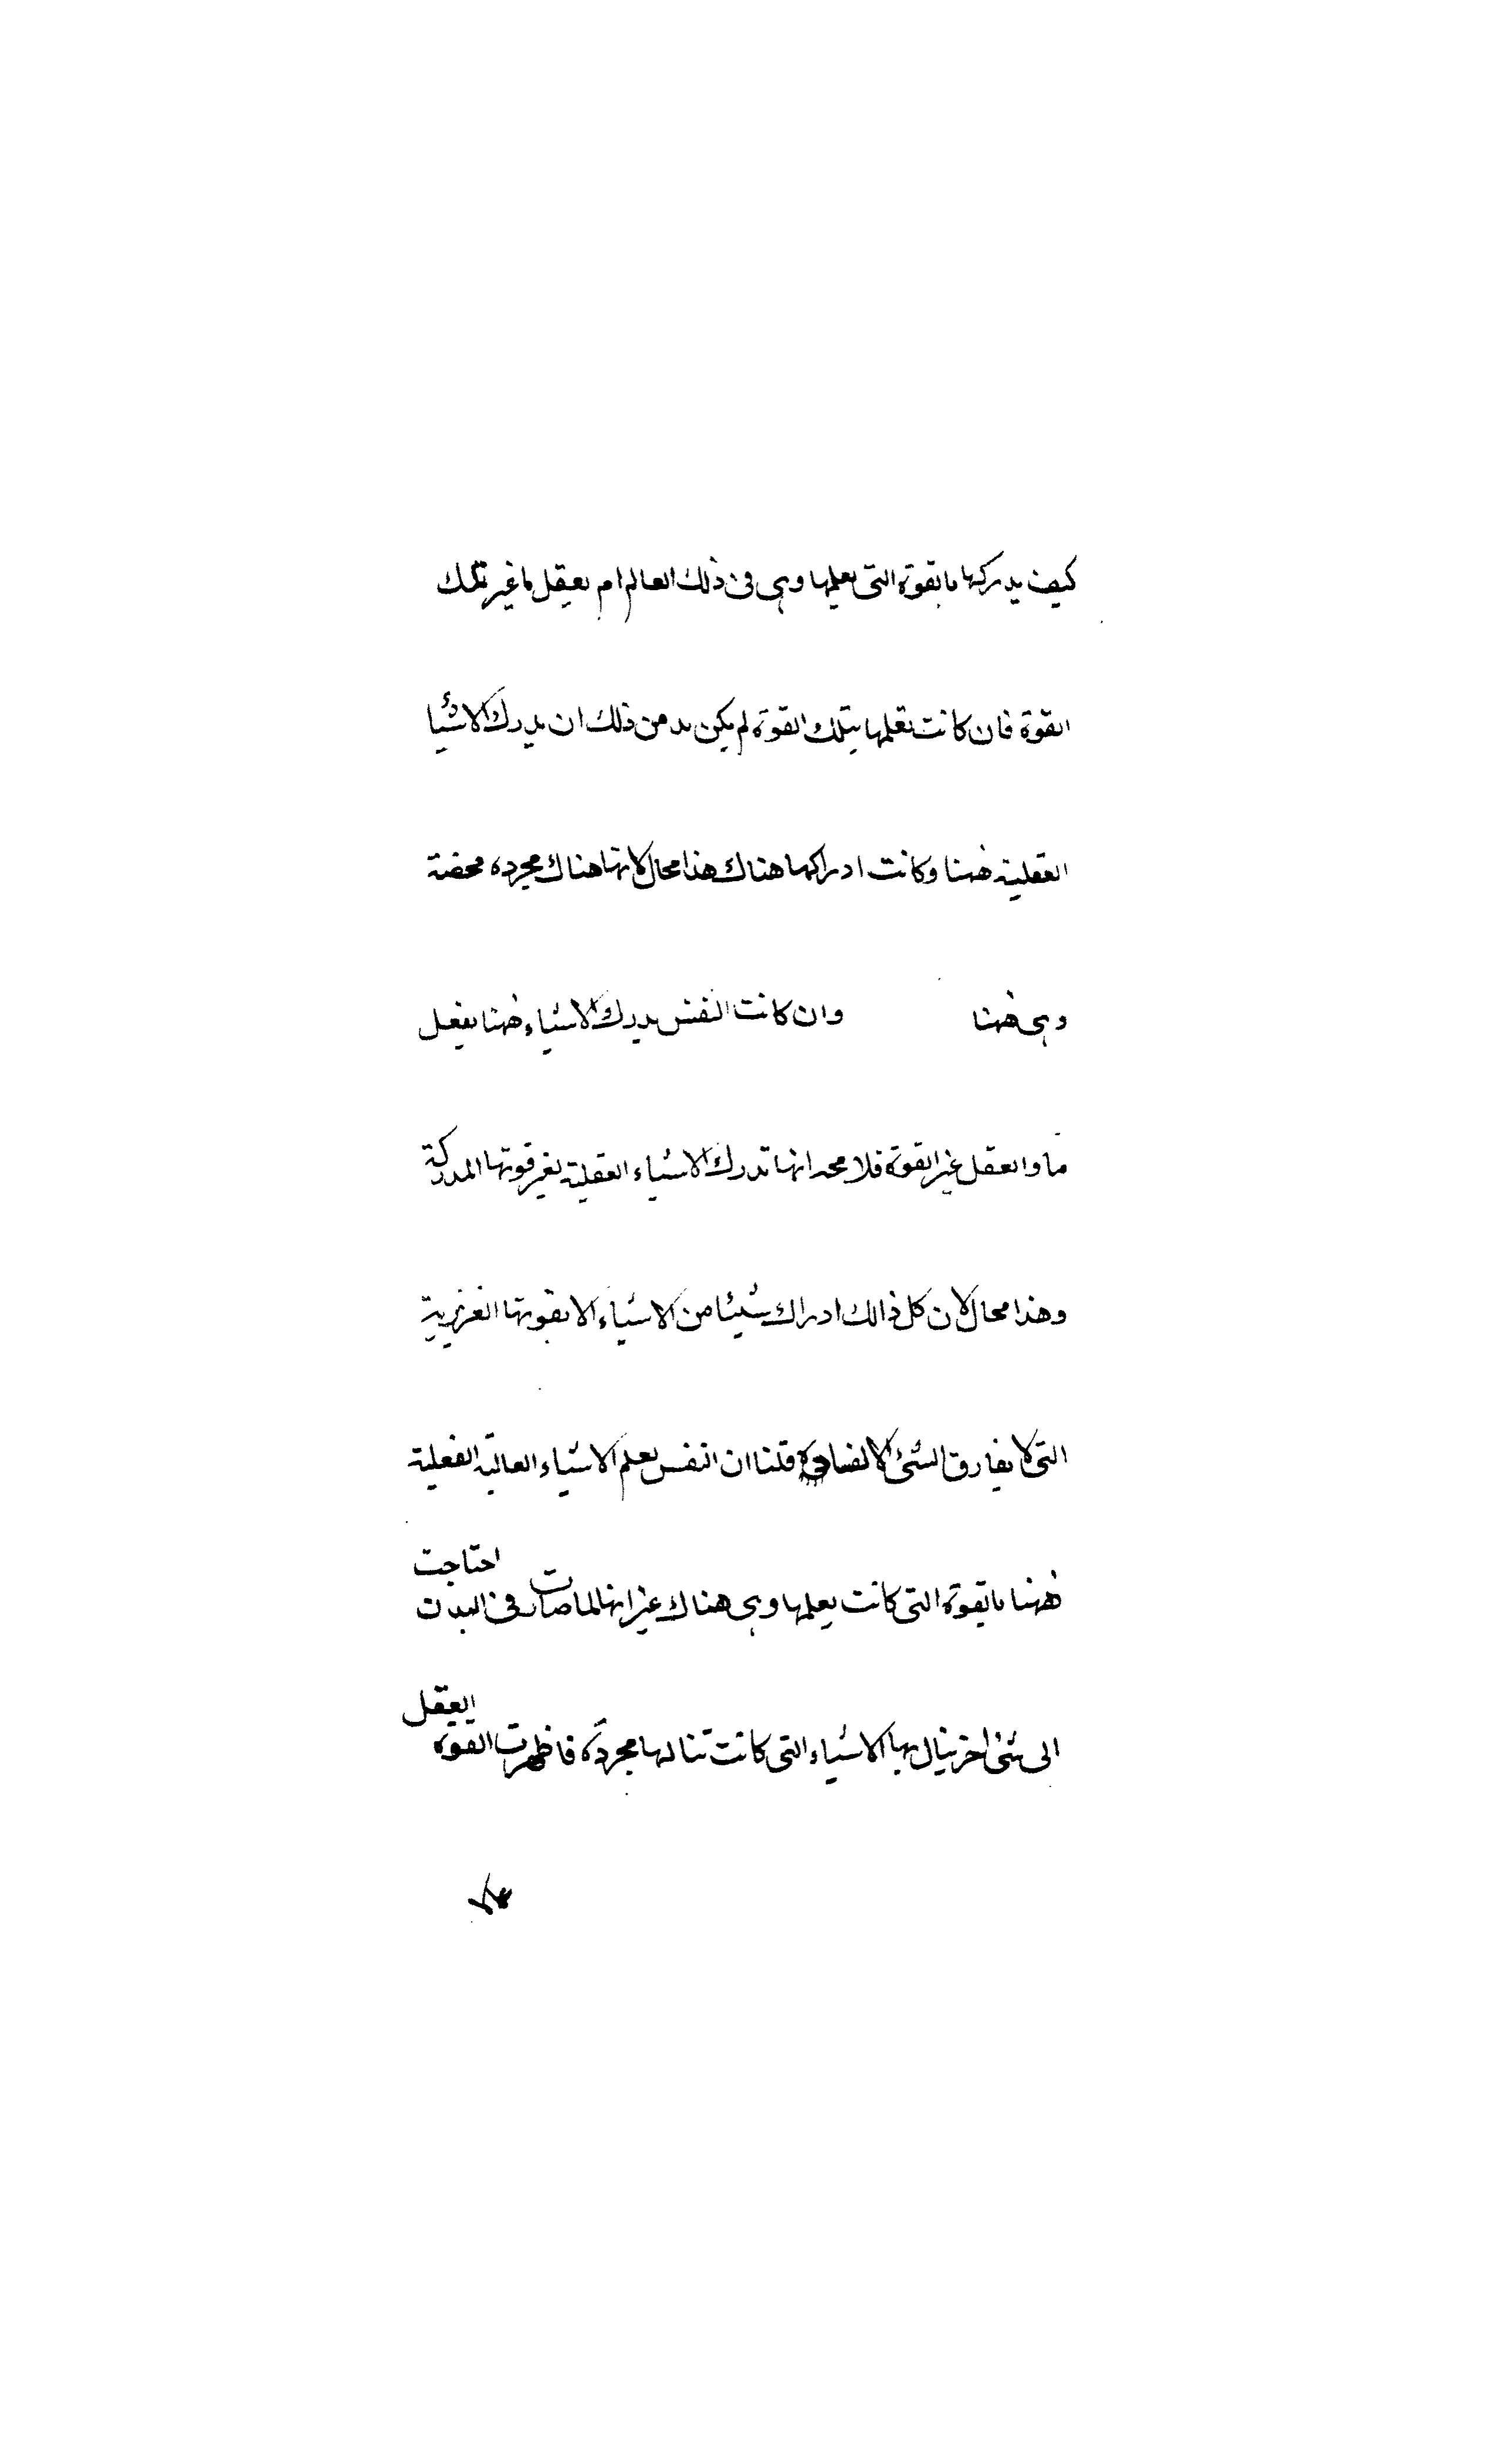 كيف يدركها بالقوة التى يعلمها وهى فى ذلك العالم ام بعقل ما غير تلك
القوة فان كانت تعلمها بتلك القوة لم يكن بد من ذلك ان يدرك الاشيأ
العقلية ههنا وكانت ادراكها هناك هذا محال لانها هناك مجرده محضة
وهى ههنا وان كانت النفس يدرك الاشياء ههنا بفعل
ما والعقل غير القوة فلا محد انها تدرك الاشياء العقلية بغير قوتها المدركة
وهذا محال لان كل ذالك ادراك شيئا من الاشياء الا بقوتها الغريزية
التى لا يفارق الشئ الا قلنا ان النفس يعلم الاشياء العالية الفعلية
ههنا بالقوة التى كانت يعلمها وهى هناك غير انها لما صارت فى البدن احتاجت
الى شئ اخر ينال بها الاشياء التى كانت تنالها مجردة فاظهرت القوة العقل